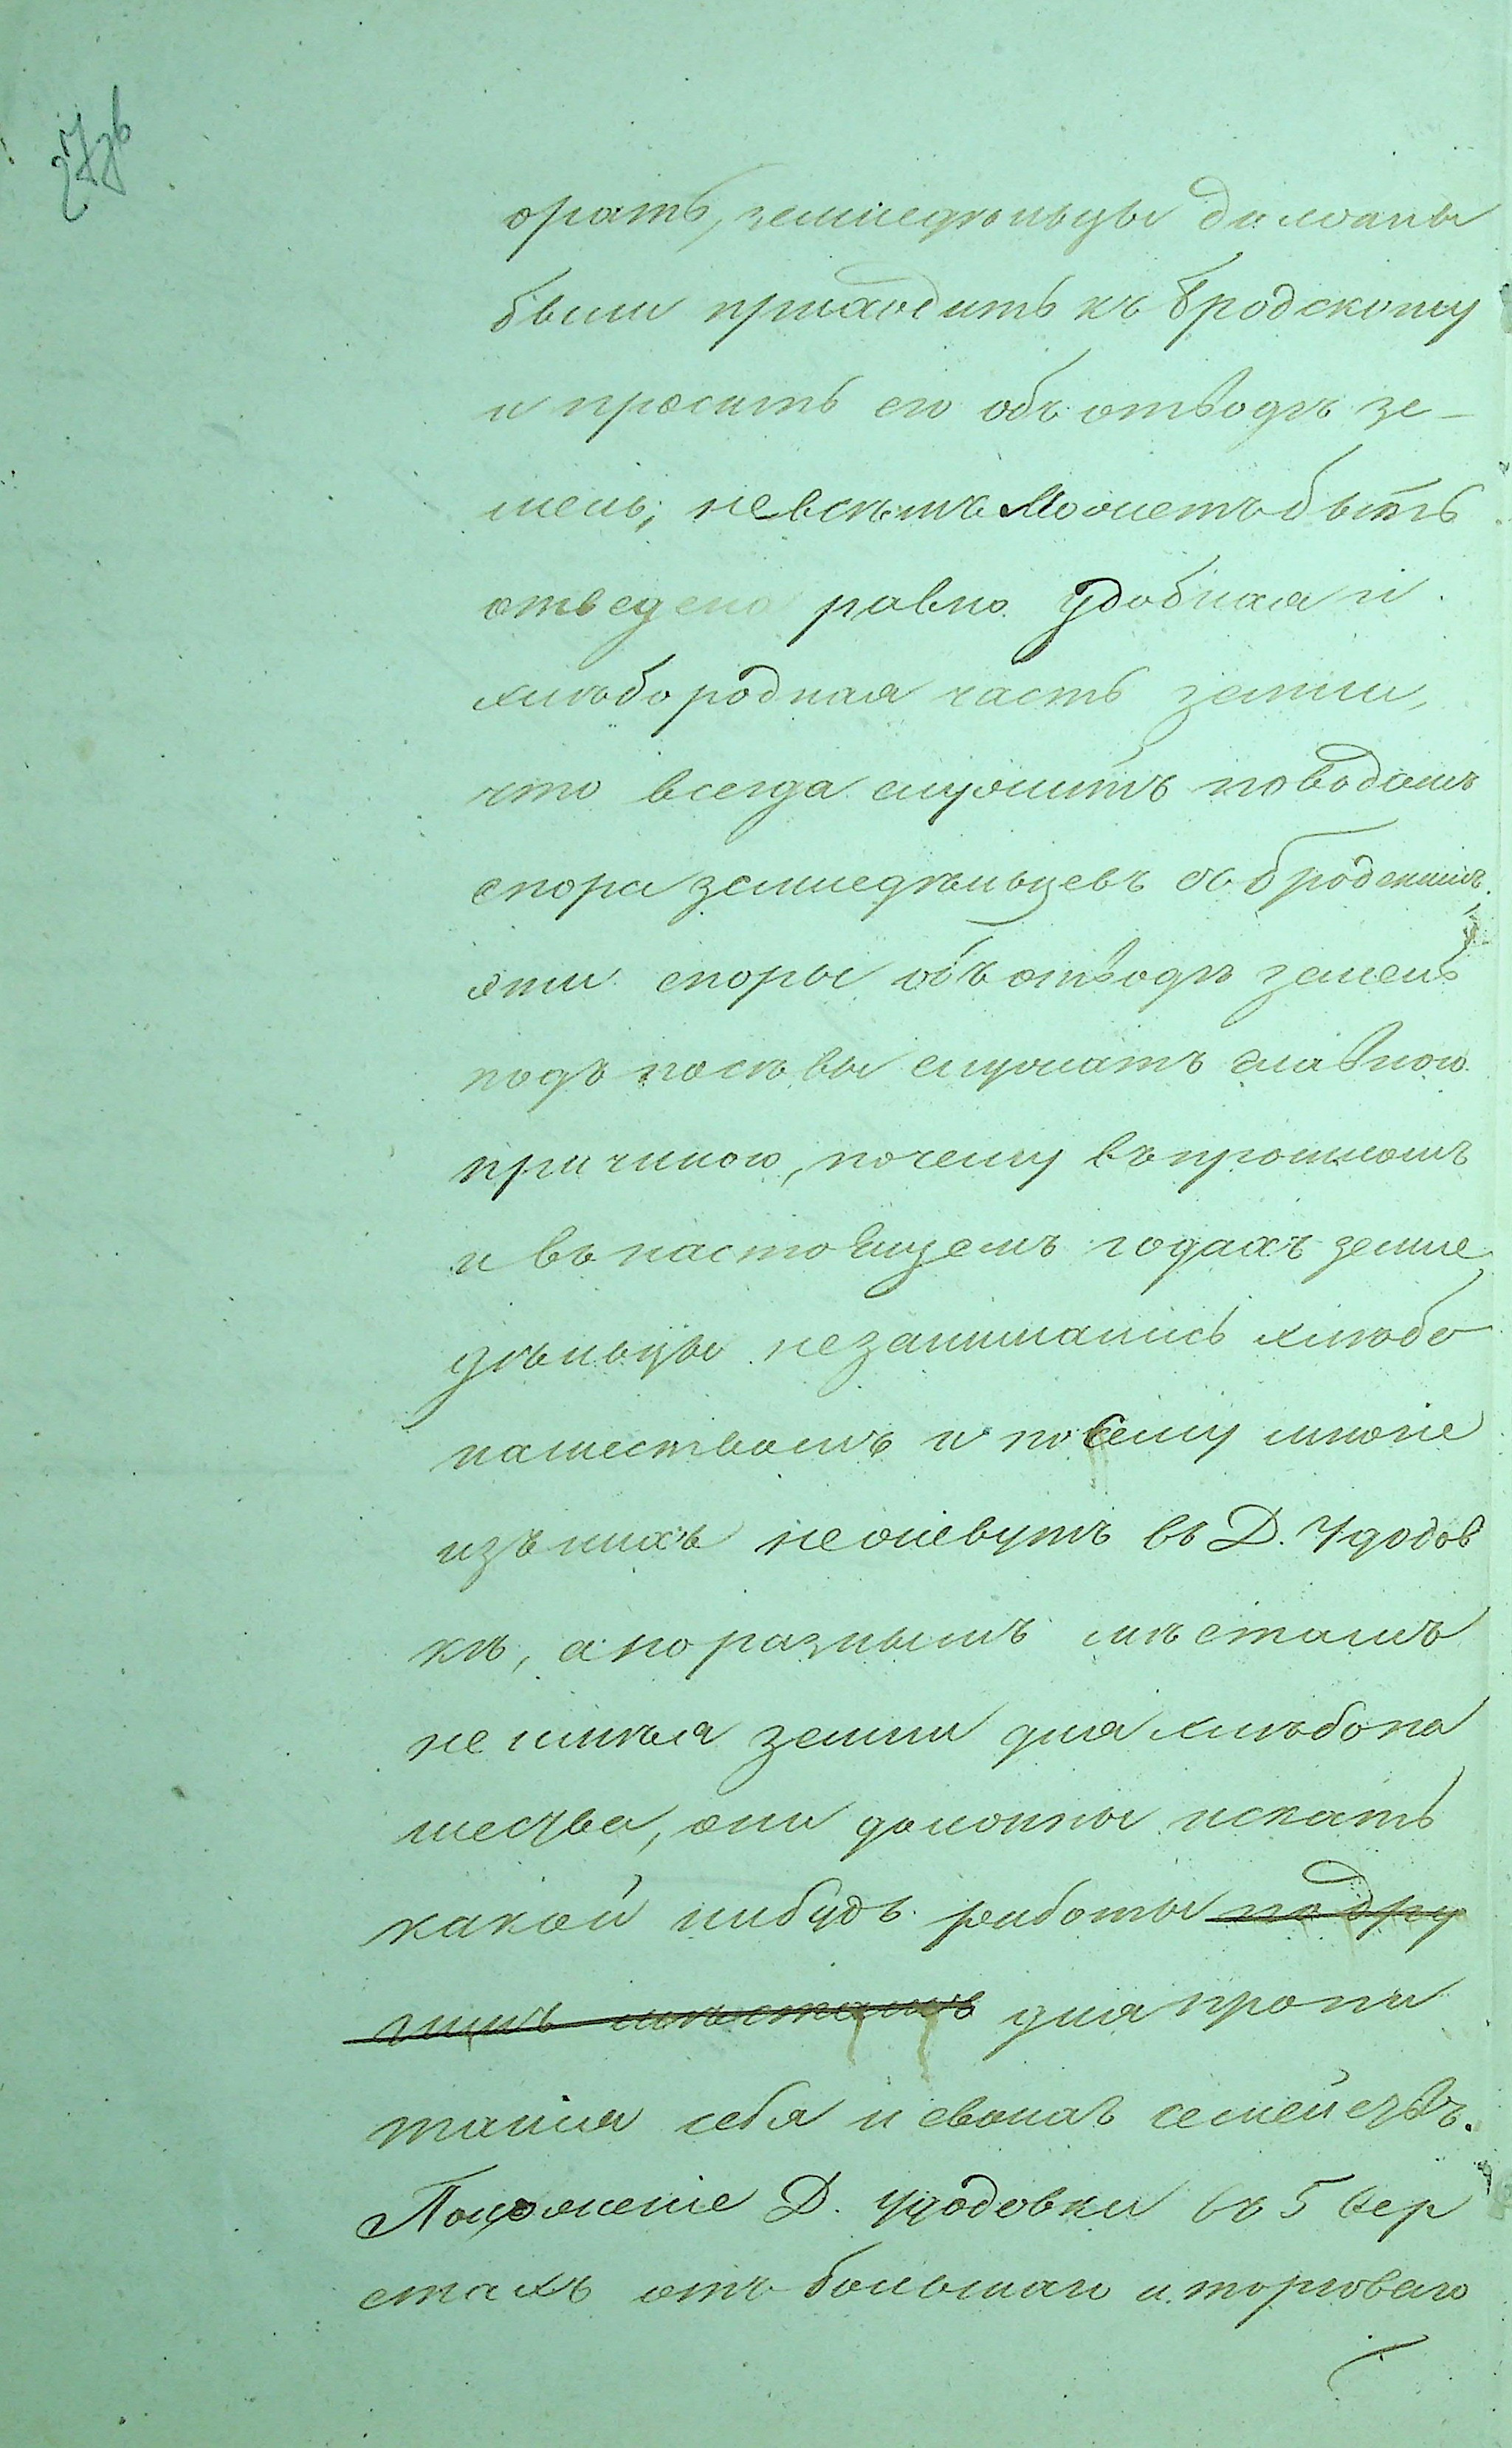 орать, земледѣльцы должны
были приходить къ Бродскому
и просить его объ отводѣ зе-
мель; невсѣмъ Можетъ быть
отведена равно удобная и
хлѣбородная часть земли,
что всегда служитъ поводомъ
спора земледѣльцевъ съ Бродскимъ.
эти споры объ отводѣ земель
подъ посѣвы служатъ главною
причиною, почему въ прошломъ
и въ настоящемъ годахъ земле
дѣльцы незанимались хлѣбо
пашествомъ и посему многіе
изъ нихъ неживутъ въ Д. Удодов
кѣ, а по разнымъ мѣстамъ
не имѣя земли для хлѣбопа
шества, они должны искать
какой нибудь работы по дру
гимъ мѣстамъ для пропи
танія себя и своихъ семействъ.
Положеніе Д. Удодовки въ 5 вер
стахъ отъ большаго и торговаго